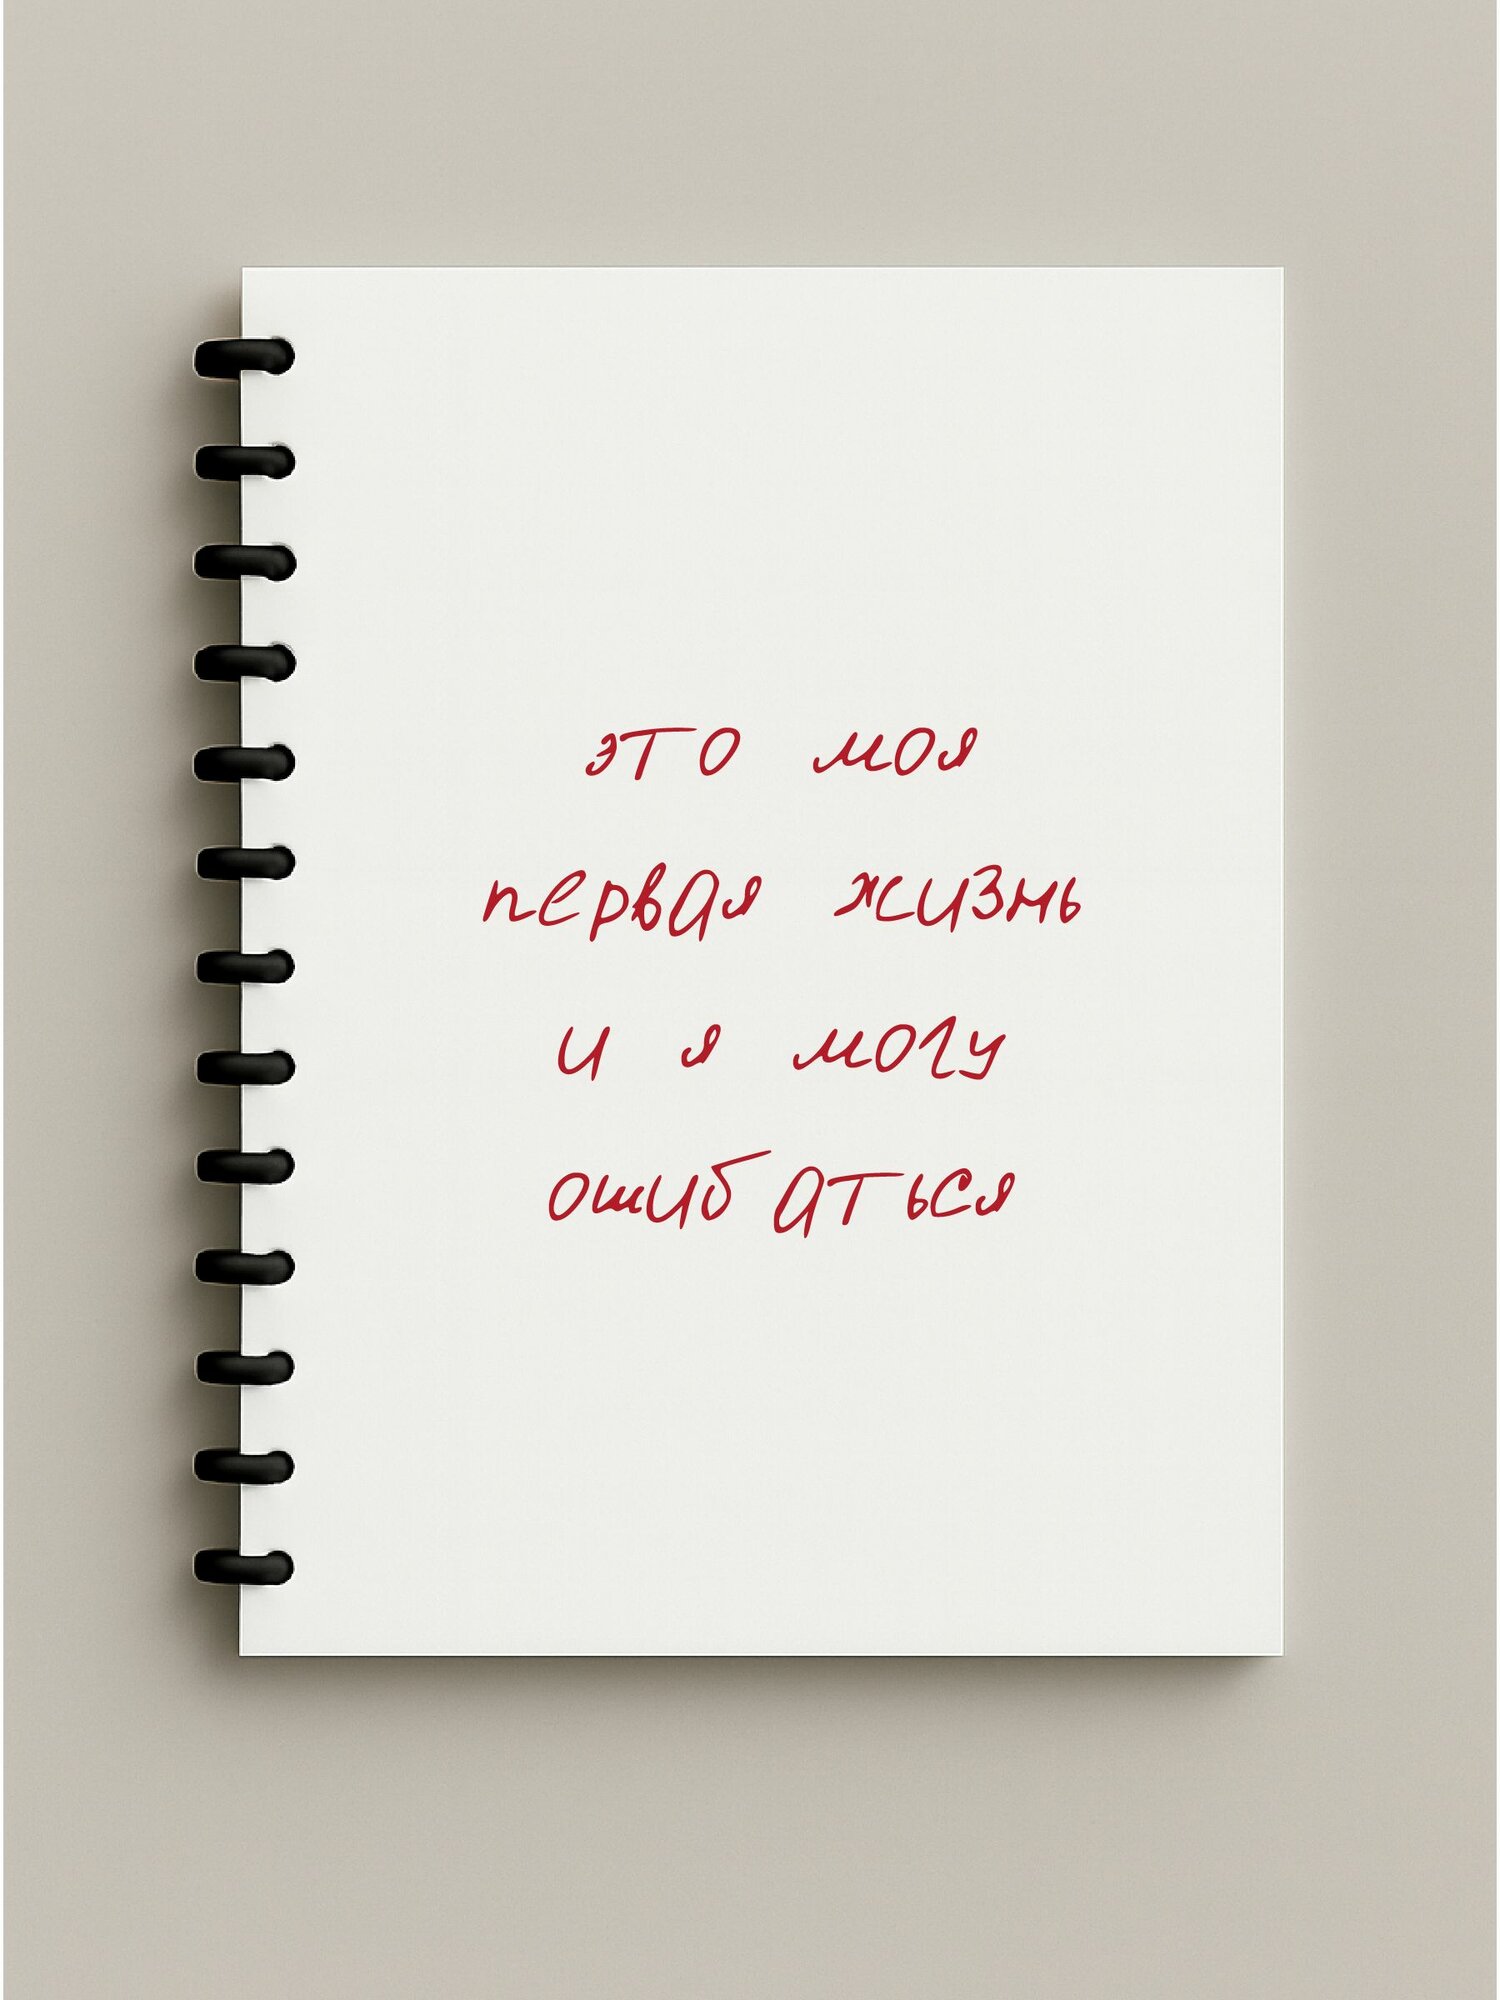 это моя
первая жизнь
и я могу
ошибаться